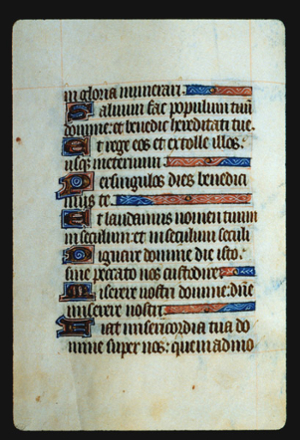 in gloria munerari.
Saluum fac populum tuũ
domine: et benedic hereditati tue.
Et rege eos et extolle illos:
usq; in eternum.
Per singulos dies benedici
mus te.
Et laudamus nomen tuum
in seculum: et in seculum seculi
Dignare domine die isto:
sine peccato nos custodire.
Miserere nostri domine: dñe
miserere nostri.
Fiat misericordia tua do
mine super nos: quemadmo